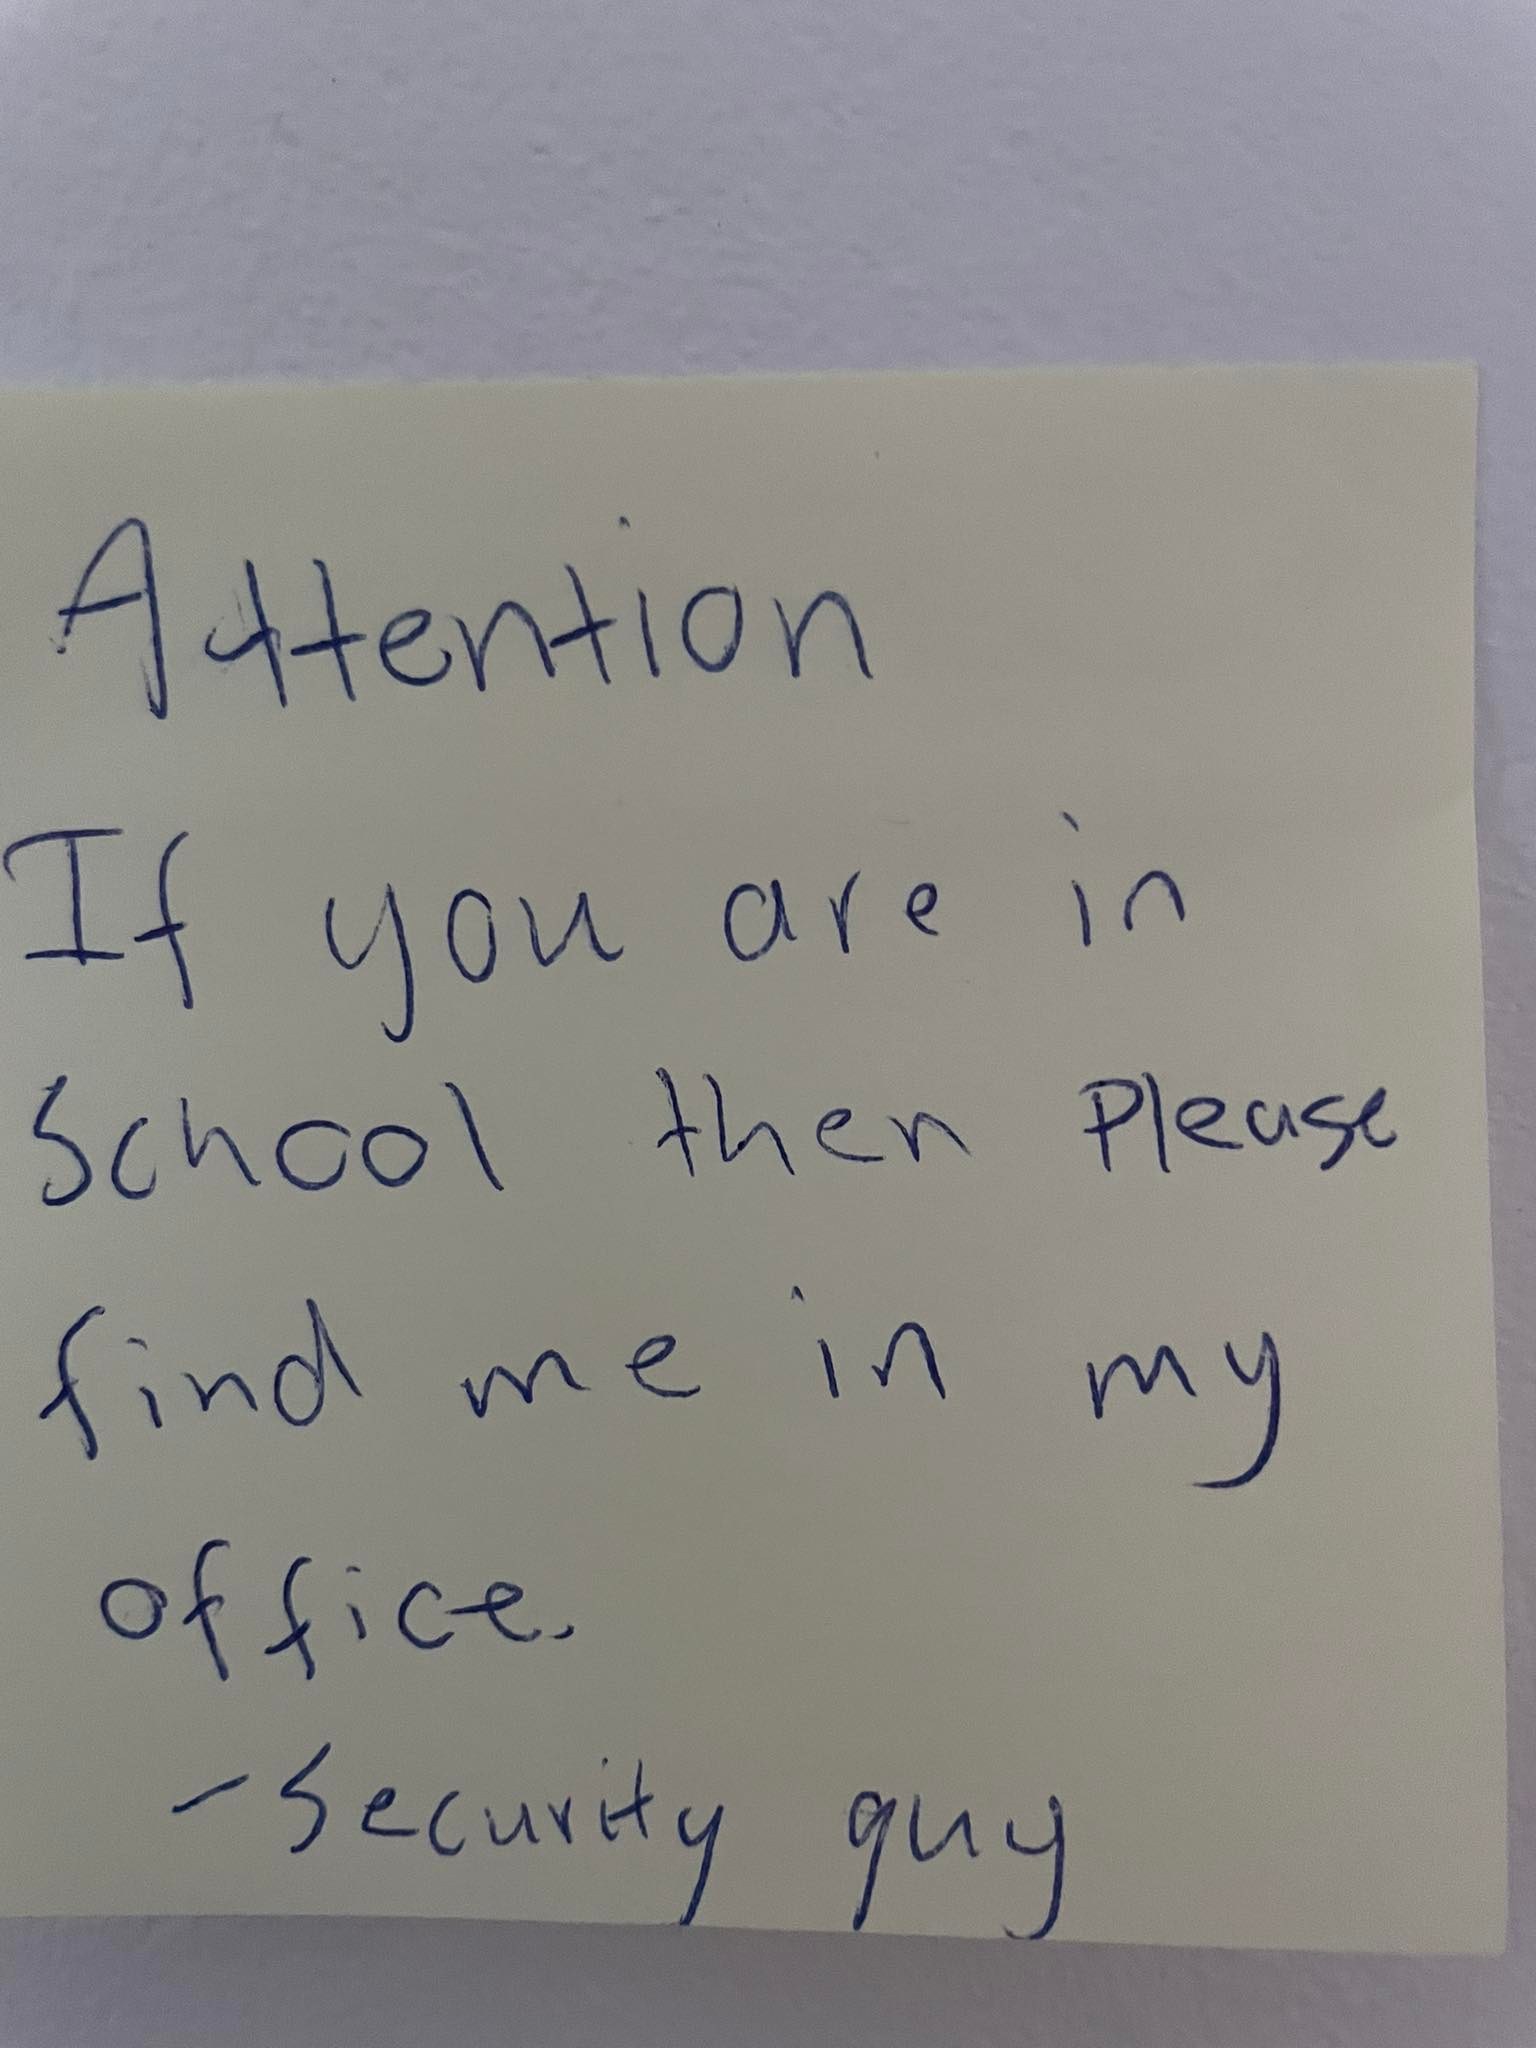 Attention
If you are in
School then Please
find me in my
office.
- Security guy